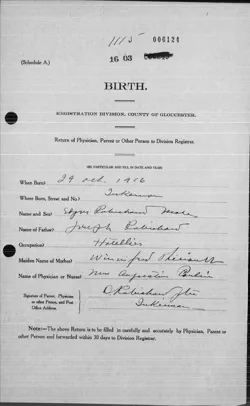 1115 006124
(Schedule A.) 16 03
BIRTH.
REGISTRATION DIVISION, COUNTY OF GLOUCESTER.
Return of Physician, Parent or Other Person to Division Registrar.
(BE PARTICULAR AND FILL IN DATE AND YEAR)
When Born? 29 Oct. 1916
Where Born, Street and No.? Inkerman
Name and Sex? Robichaud Male
Name of Father? Joseph Robichaud
Occupation?
Maiden Name of Mother? Winnifred
Name of Physician or Nurse? Mrs
Signature of Parent, Physician D. Robichaud
or other Person, and Post Inkerman
Office Address.
NOTE:—The above Return is to be filled in carefully and accurately by Physician, Parent or
other Person and forwarded within 30 days to Division Registrar.